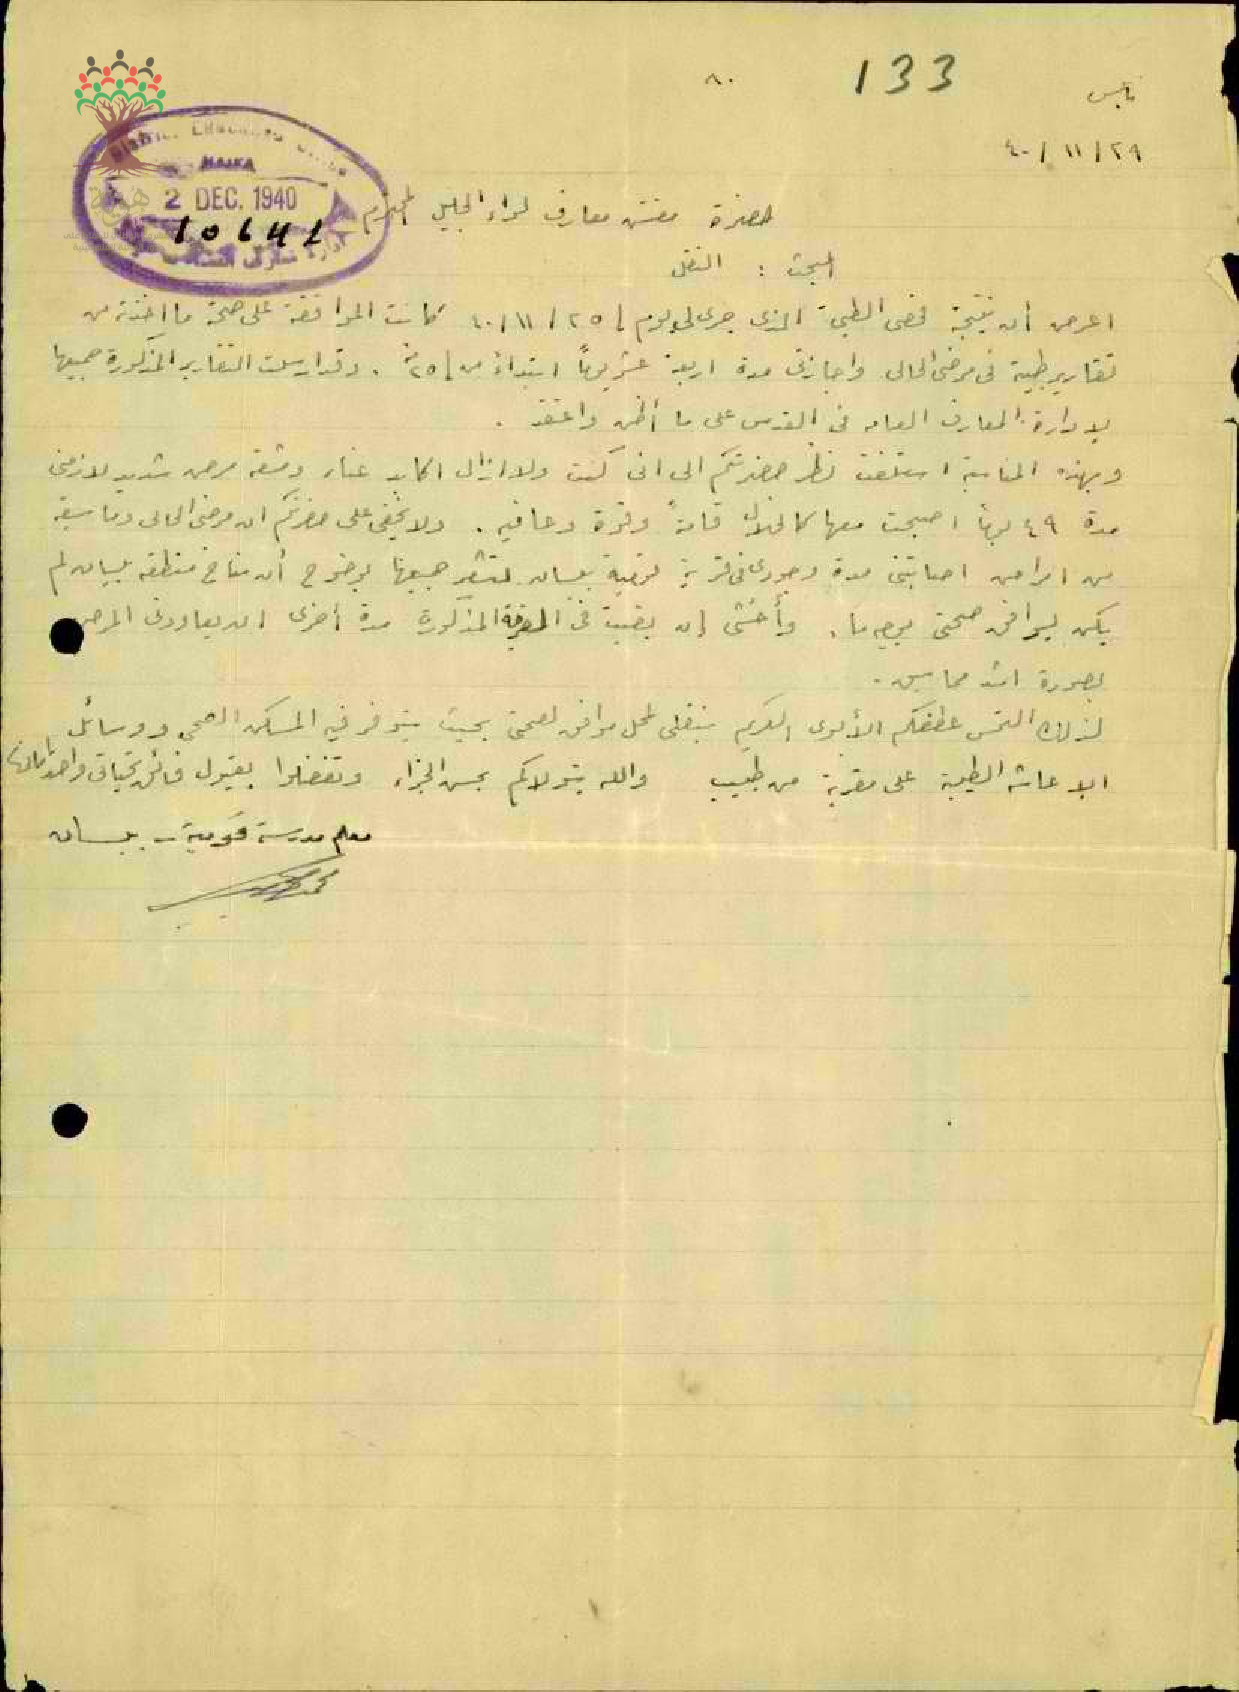 133
٨٠
نابلس
٢٩/ ١١ / ٤٠
District Education Office
HAIFA
2 DEC. 1940
10641
ادارة معارف
حضرة مفتش معارف لواء الجليل المحترم
البحث : النقل
اعرض أن نتيجة فحصي الطبي الذي جرى لي يوم ٢٥ / ١١ / ٤٠ كانت الموافقة على صحة ما اخذته من
تقارير طبية في مرضي الحالي واجازتي مدة اربعة عشر يوماً ابتداءً من ٢٥ منه . وقد ارسلت التقارير المذكورة جميعها
لإدارة المعارف العامه في القدس على ما أظن واعتقد .
وبهذه المناسبة استلفت نظر حضرتكم الى اني كنت ولا ازال اكابد عناء ومشقه مرض شديد لازمني
مدة ٤٩ يوماً اصبحت معها كالخلال قامةً وقوة وعافيه . ولا يخفى على حضرتكم ان مرضي الحالي وما سبقه
من امراض اصابتني مدة وجودي في قرية قومية بيسان لتشعر جميعها بوضوح أن مناخ منطقة بيسان لم
يكن ليوافق صحتي يوم ما . وأخشى إن بقيت في المذكورة مدة أخرى ان يعاودني المرض
بصورة اشد مما سبق .
لذلك التمس عطفكم الأبوي الكريم بنقلي لمحل موافق لصحتي بحيث يتوفر فيه المسكن الصحي ووسائل
الإعاشه الطيبة على مقربة من طبيب والله يتولاكم بحسن الجزاء وتفضلوا بقبول فائق تحياتي واحتراماتي
معلم مدرسة قومية - بيسان